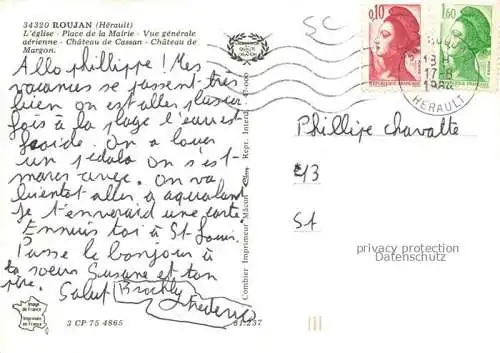 34320 ROUJAN (Hérault)
L'église - Place de la Mairie - Vue générale
aérienne - Château de Cassan - Château de
Margon.
Allo phillippe! Mes
vacances se passent très
bien on est aller plusieur
fois à la plage l'eau est
froide. On a louer
un pédalo on s'est
marer avec. On va
bientot aller à aqualand
Je t'enverrai une carte
Ennuis toi à St Louis.
Passe le bonjour à
ta soeur Susane et ton
père. Salut Brochly
Frédéric
Image
de France
Imprimée
en France
3 CP 75 4865
51.237
Combier Imprimeur Mâcon
Repr. Interd.
SC
0,10
REPUBLIQUE FRANÇAISE
1,60
REPUBLIQUE FRANÇAISE
18 H
17-8
HERAULT
Phillipe Chavatte
E13
St
privacy protection
Datenschutz